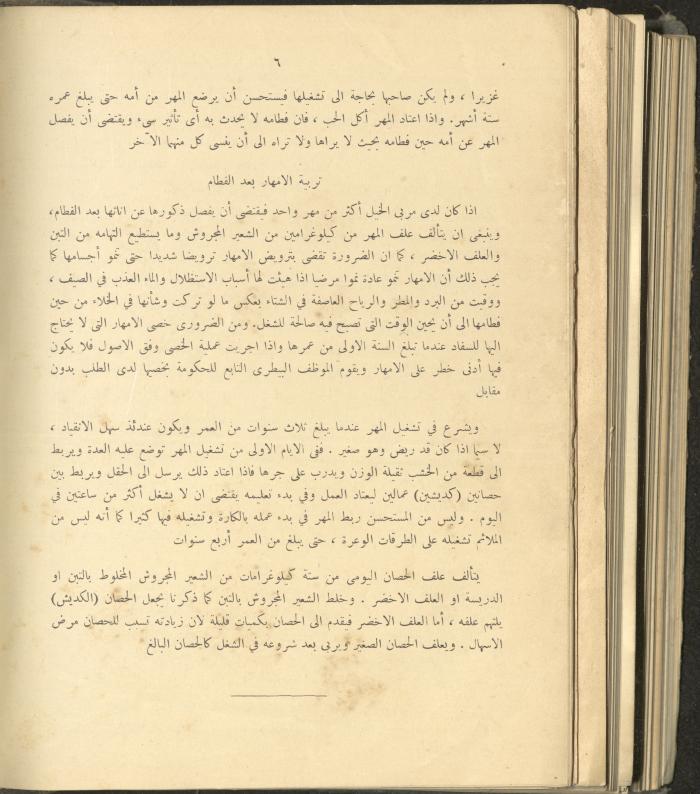 ٦
غزيرا ، ولم يكن صاحبها بحاجة الى تشغيلها فيستحسن أن يرضع المهر من أمه حتى يبلغ عمره
ستة أشهر. واذا اعتاد المهر أكل الحب ، فان فطامه لا يحدث به أى تأثير سىء ويقتضى أن يفصل
المهر عن أمه حين فطامه بحيث لا يراها ولا تراه الى أن يفسى كل منهما الآخر
تربية الامهار بعد الفطام
اذا كان لدى مربى الخيل أكثر من مهر واحد فيقتضى أن يفصل ذكورها عن اناثها بعد الفطام،
وينبغى ان يتألف علف المهر من كيلوغرامين من الشعير المجروش وما يستطيع التهامه من التبن
والعلف الاخضر ، كما ان الضرورة تقضى بترويض الامهار ترويضا شديدا حتى تنمو أجسامها كما
يجب ذلك أن الامهار تنمو عادة نموا مرضيا اذا هيئت لها أسباب الاستظلال والماء العذب في الصيف ،
ووقيت من البرد والمطر والرياح العاصفة في الشتاء بعكس ما لو تركت وشأنها في الخلاء من حين
فطامها الى أن يحين الوقت التى تصبح فيه صالحة للشغل. ومن الضرورى خصى الامهار التى لا يحتاج
اليها للسفاد عندما تبلغ السنة الاولى من عمرها واذا اجريت عملية الخصى وفق الاصول فلا يكون
فيها أدنى خطر على الامهار ويقوم الموظف البيطرى التابع للحكومة بخصيها لدى الطلب بدون
مقابل
ويشرع في تشغيل المهر عندما يبلغ ثلاث سنوات من العمر ويكون عندئذ سهل الانقياد ،
لا سيما اذا كان قد ريض وهو صغير . ففى الايام الاولى من تشغيل المهر توضع عليه العدة ويربط
الى قطعة من الخشب ثقيلة الوزن ويدرب على جرها فاذا اعتاد ذلك يرسل الى الحقل ويربط بين
حصانين (كديشين) عمالين ليعتاد العمل وفي بدء تعليمه يقتضى ان لا يشغل أكثر من ساعتين في
اليوم . وليس من المستحسن ربط المهر في بدء عمله بالكارة وتشغيله فيها كثيرا كما أنه ليس من
الملائم تشغيله على الطرقات الوعرة ، حتى يبلغ من العمر أربع سنوات
يتألف علف الحصان اليومى من ستة كيلوغرامات من الشعير المجروش المخلوط بالتبن او
الدريسة او العلف الاخضر . وخلط الشعير المجروش بالتبن كما ذكرنا يجعل الحصان (الكديش)
يلتهم علفه ، أما العلف الاخضر فيقدم الى الحصان بكميات قليلة لان زيادته تسبب للحصان مرض
الاسهال . ويعلف الحصان الصغير ويربى بعد شروعه في الشغل كالحصان البالغ